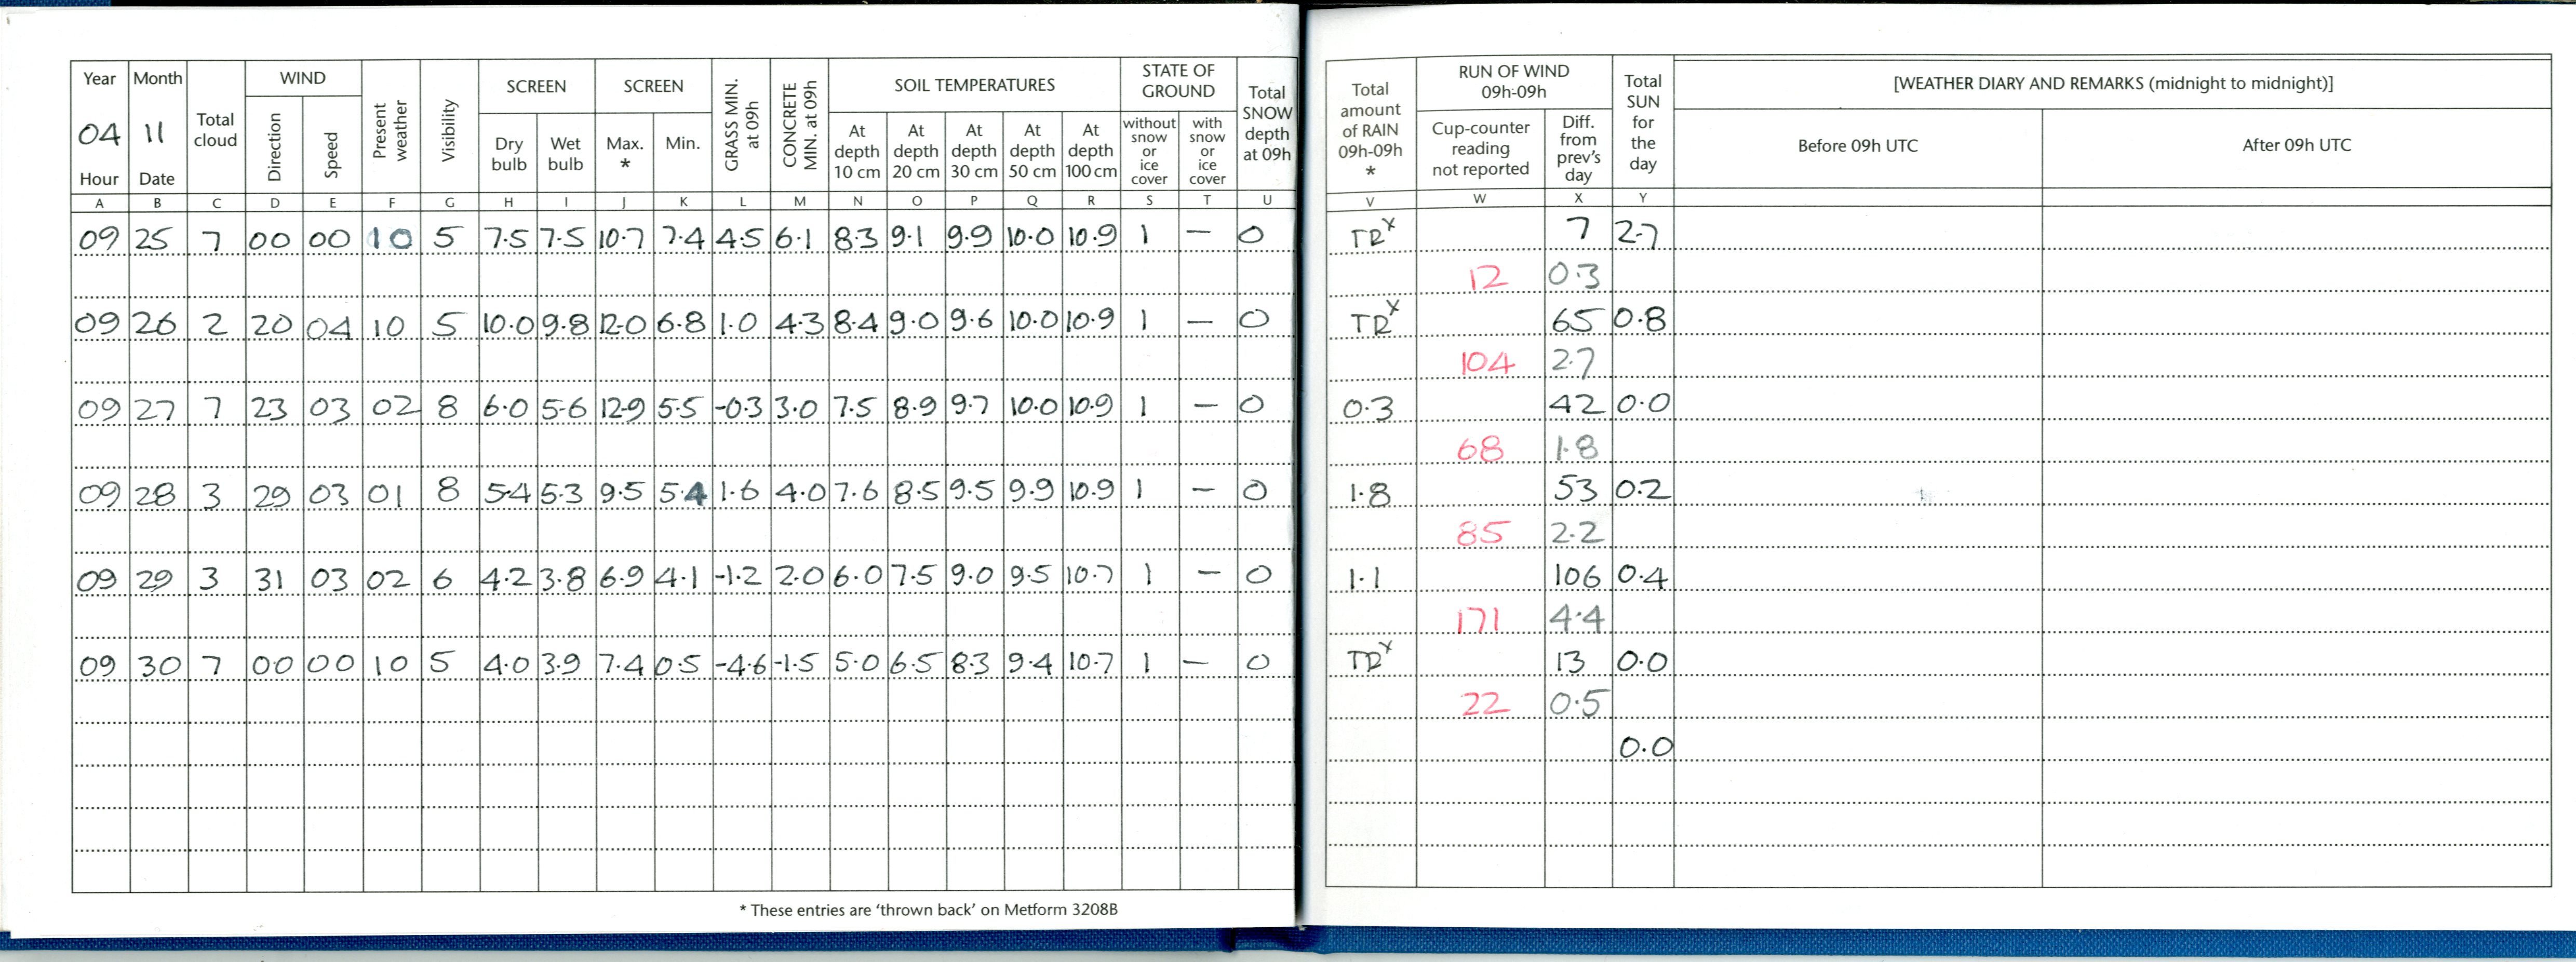 Year Month WIND SCREEN SCREEN SOIL TEMPERATURES STATE OF GROUND
04 11 Total cloud Direction Speed Present weather Visibility Dry bulb Wet bulb Max. * Min. GRASS MIN. at 09h CONCRETE MIN. at 09h At depth 10 cm At depth 20 cm At depth 30 cm At depth 50 cm At depth 100 cm without snow or ice cover with snow or ice cover Total SNOW depth at 09h
Hour Date
A B C D E F G H I J K L M N O P Q R S T U
09 25 7 00 00 10 5 7.5 7.5 10.7 7.4 4.5 6.1 8.3 9.1 9.9 10.0 10.9 1 — 0
09 26 2 20 04 10 5 10.0 9.8 12.0 6.8 1.0 4.3 8.4 9.0 9.6 10.0 10.9 1 — 0
09 27 7 23 03 02 8 6.0 5.6 12.9 5.5 -0.3 3.0 7.5 8.9 9.7 10.0 10.9 1 — 0
09 28 3 29 03 01 8 5.4 5.3 9.5 5.4 1.6 4.0 7.6 8.5 9.5 9.9 10.9 1 — 0
09 29 3 31 03 02 6 4.2 3.8 6.9 4.1 -1.2 2.0 6.0 7.5 9.0 9.5 10.7 1 — 0
09 30 7 00 00 10 5 4.0 3.9 7.4 0.5 -4.6 -1.5 5.0 6.5 8.3 9.4 10.7 1 — 0
* These entries are ‘thrown back’ on Metform 3208B
Total amount of RAIN 09h-09h * RUN OF WIND 09h-09h Total SUN for the day [WEATHER DIARY AND REMARKS (midnight to midnight)]
Cup-counter reading not reported Diff. from prev's day Before 09h UTC After 09h UTC
V W X Y
TRx 7 2.7
12 0.3
TRx 65 0.8
104 2.7
0.3 42 0.0
68 1.8
1.8 53 0.2
85 2.2
1.1 106 0.4
171 4.4
TRx 13 0.0
22 0.5
0.0